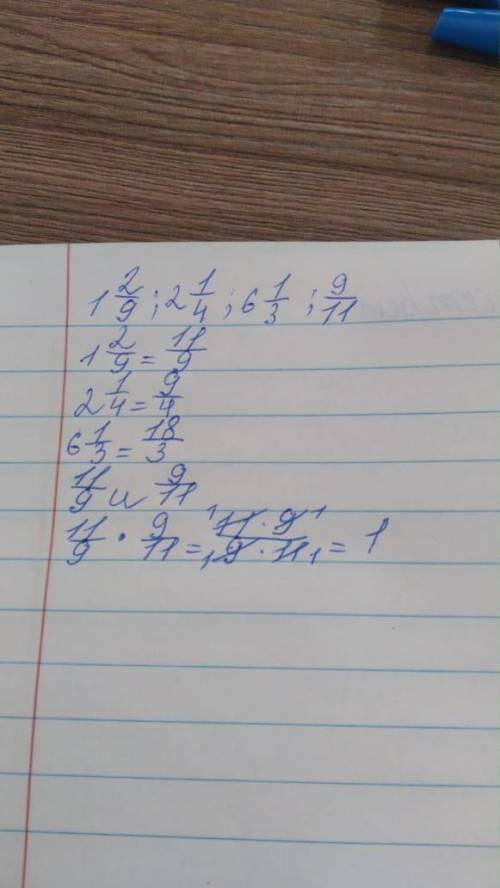 1 2/9 ; 2 1/4 ; 6 1/3 ; 9/11
1 2/9 = 11/9
2 1/4 = 9/4
6 1/3 = 18/3
11/9 и 9/11
11/9 · 9/11 = 11 · 9 / 9 · 11 = 1